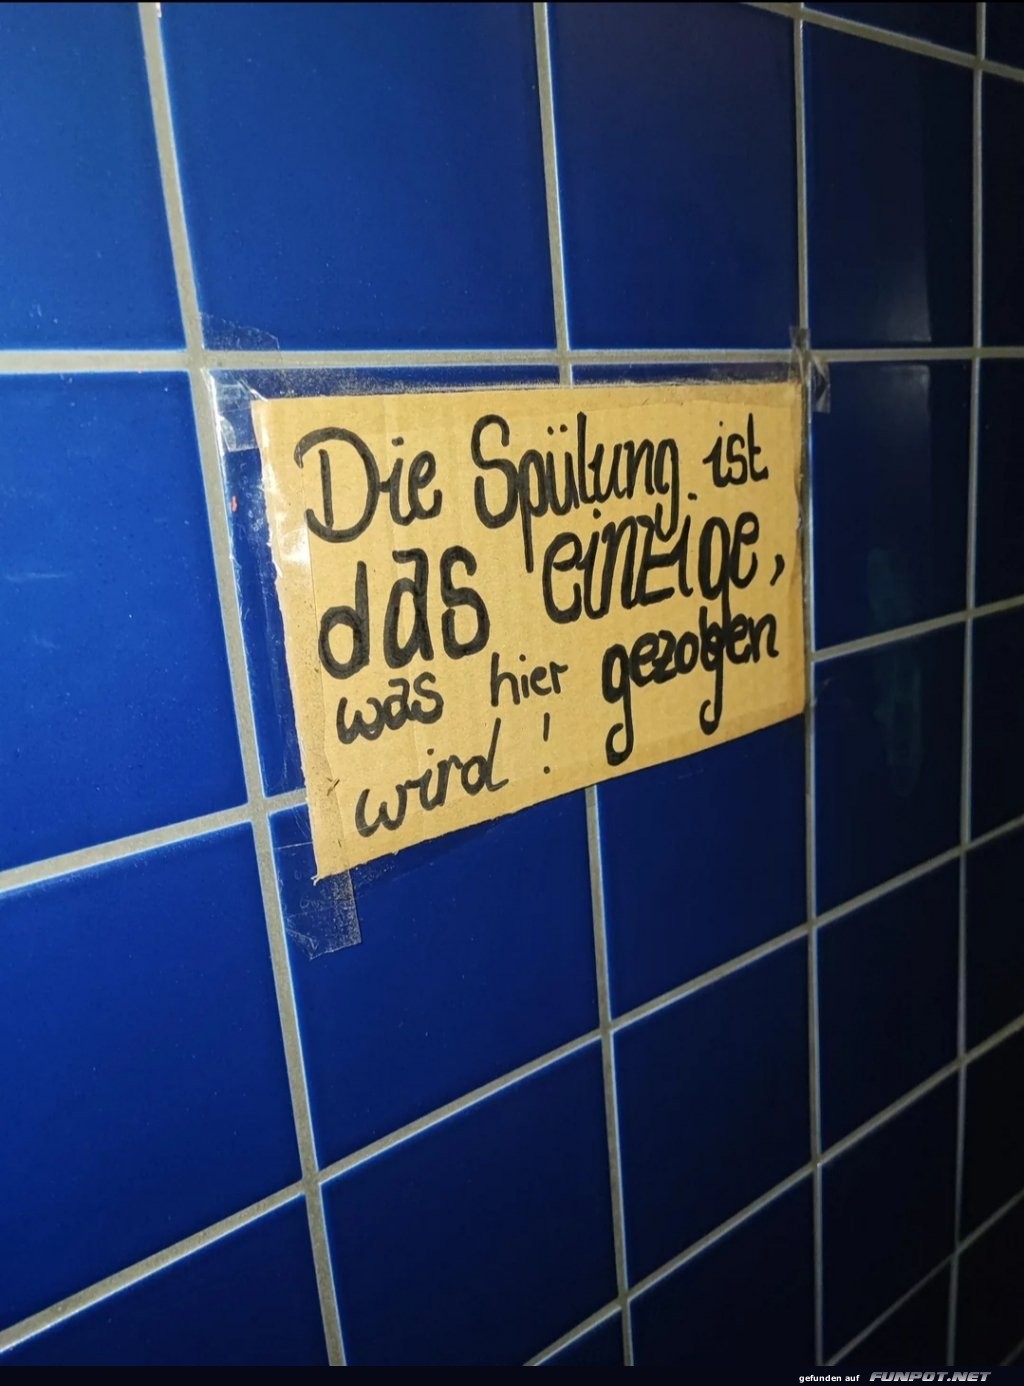 Die Spülung ist
das einzige,
was hier gezogen
wird!
gefunden auf FUNPOT.NET